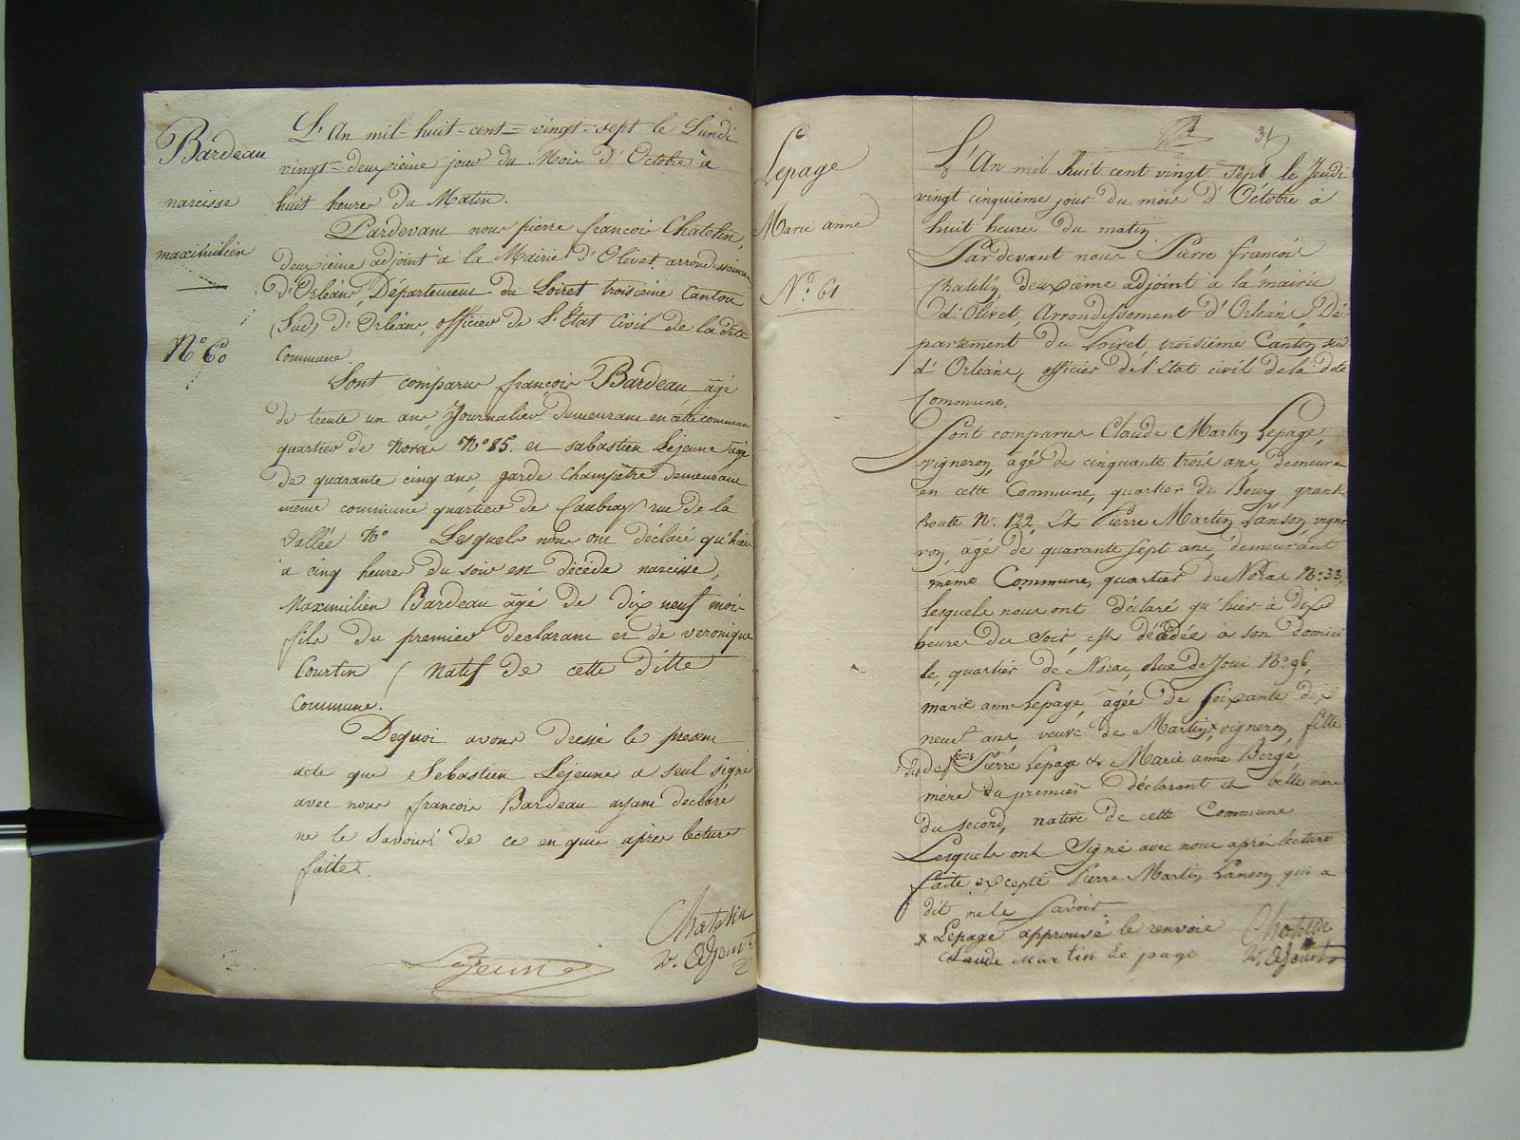 Bardeau
narcisse
maximilien
N° 60
L'An mil-huit-cent-vingt-sept le Lundi
vingt-deuxieme jour du Mois d'Octobre à
huit heures du Matin.
Pardevant nous pierre francois Chatelin,
deuxieme adjoint à la Mairie d'Olivet arrondissement
d'Orléans, Departement du Loiret troisieme Canton
(Sud) d'Orléans, officier de l'Etat Civil de la dite
Commune.
Sont comparus françois Bardeau âgé
de trente un ans, Journalier demeurant en cette commune
quartier de Noras N° 85. et sabastien Lejeune âgé
de quarante cinq ans, garde Champêtre demeurant
même commune quartier de Caubray rue de la
Vallée N° Lesquels nous ont déclaré qu'hier
à cinq heures du soir est décédé narcisse,
Maximilien Bardeau âgé de dix neuf mois
fils du premier declarant et de veronique
Courtin (natif de cette ditte
Commune.
Dequoi avons dressé le present
acte que Sebastien Lejeune a seul signé
avec nous francois Bardeau ayant declaré
ne le savoir de ce enquis après lecture
faitte.
Chatelin
Lejeune
2. Adjoint
Lepage
Marie anne
N° 61
L'An mil huit cent vingt sept le Jeudi
vingt cinquième jour du mois d'Octobre à
huit heures du matin
Pardevant nous Pierre françois
Chatelin deuxième adjoint à la mairie
d'Olivet, Arrondissement d'Orléans, Dé-
partement du Loiret troisième Canton sud
d'Orléans, officier de l'Etat civil de la dite
Commune.
Sont comparus Claude Martin Lepage,
vigneron, âgé de cinquante trois ans, demeurant
en cette Commune, quartier du Bourg, grande
Route N° 122, Et Pierre Martin Lanson, vigne-
ron, âgé de quarante sept ans, demeurant
même Commune, quartier de Noras N° 33,
lesquels nous ont déclaré qu'hier à dix
heures du soir, est décédée à son domici-
le, quartier de Noras, Rue de Joui N° 96,
marie anne Lepage, âgée de soixante dix
neuf ans veuve de Martin x vigneron, fille
de Pierre Lepage et Marie anne Bergé
mère du premier déclarant et belle mère
du second, native de cette Commune
Lesquels ont Signé avec nous après lecture
faite excepté Pierre Martin Lanson qui a
dit ne le savoir.
x Lepage approuvé le renvoie
Chatelin
Claude Martin Le page
2. Adjoint